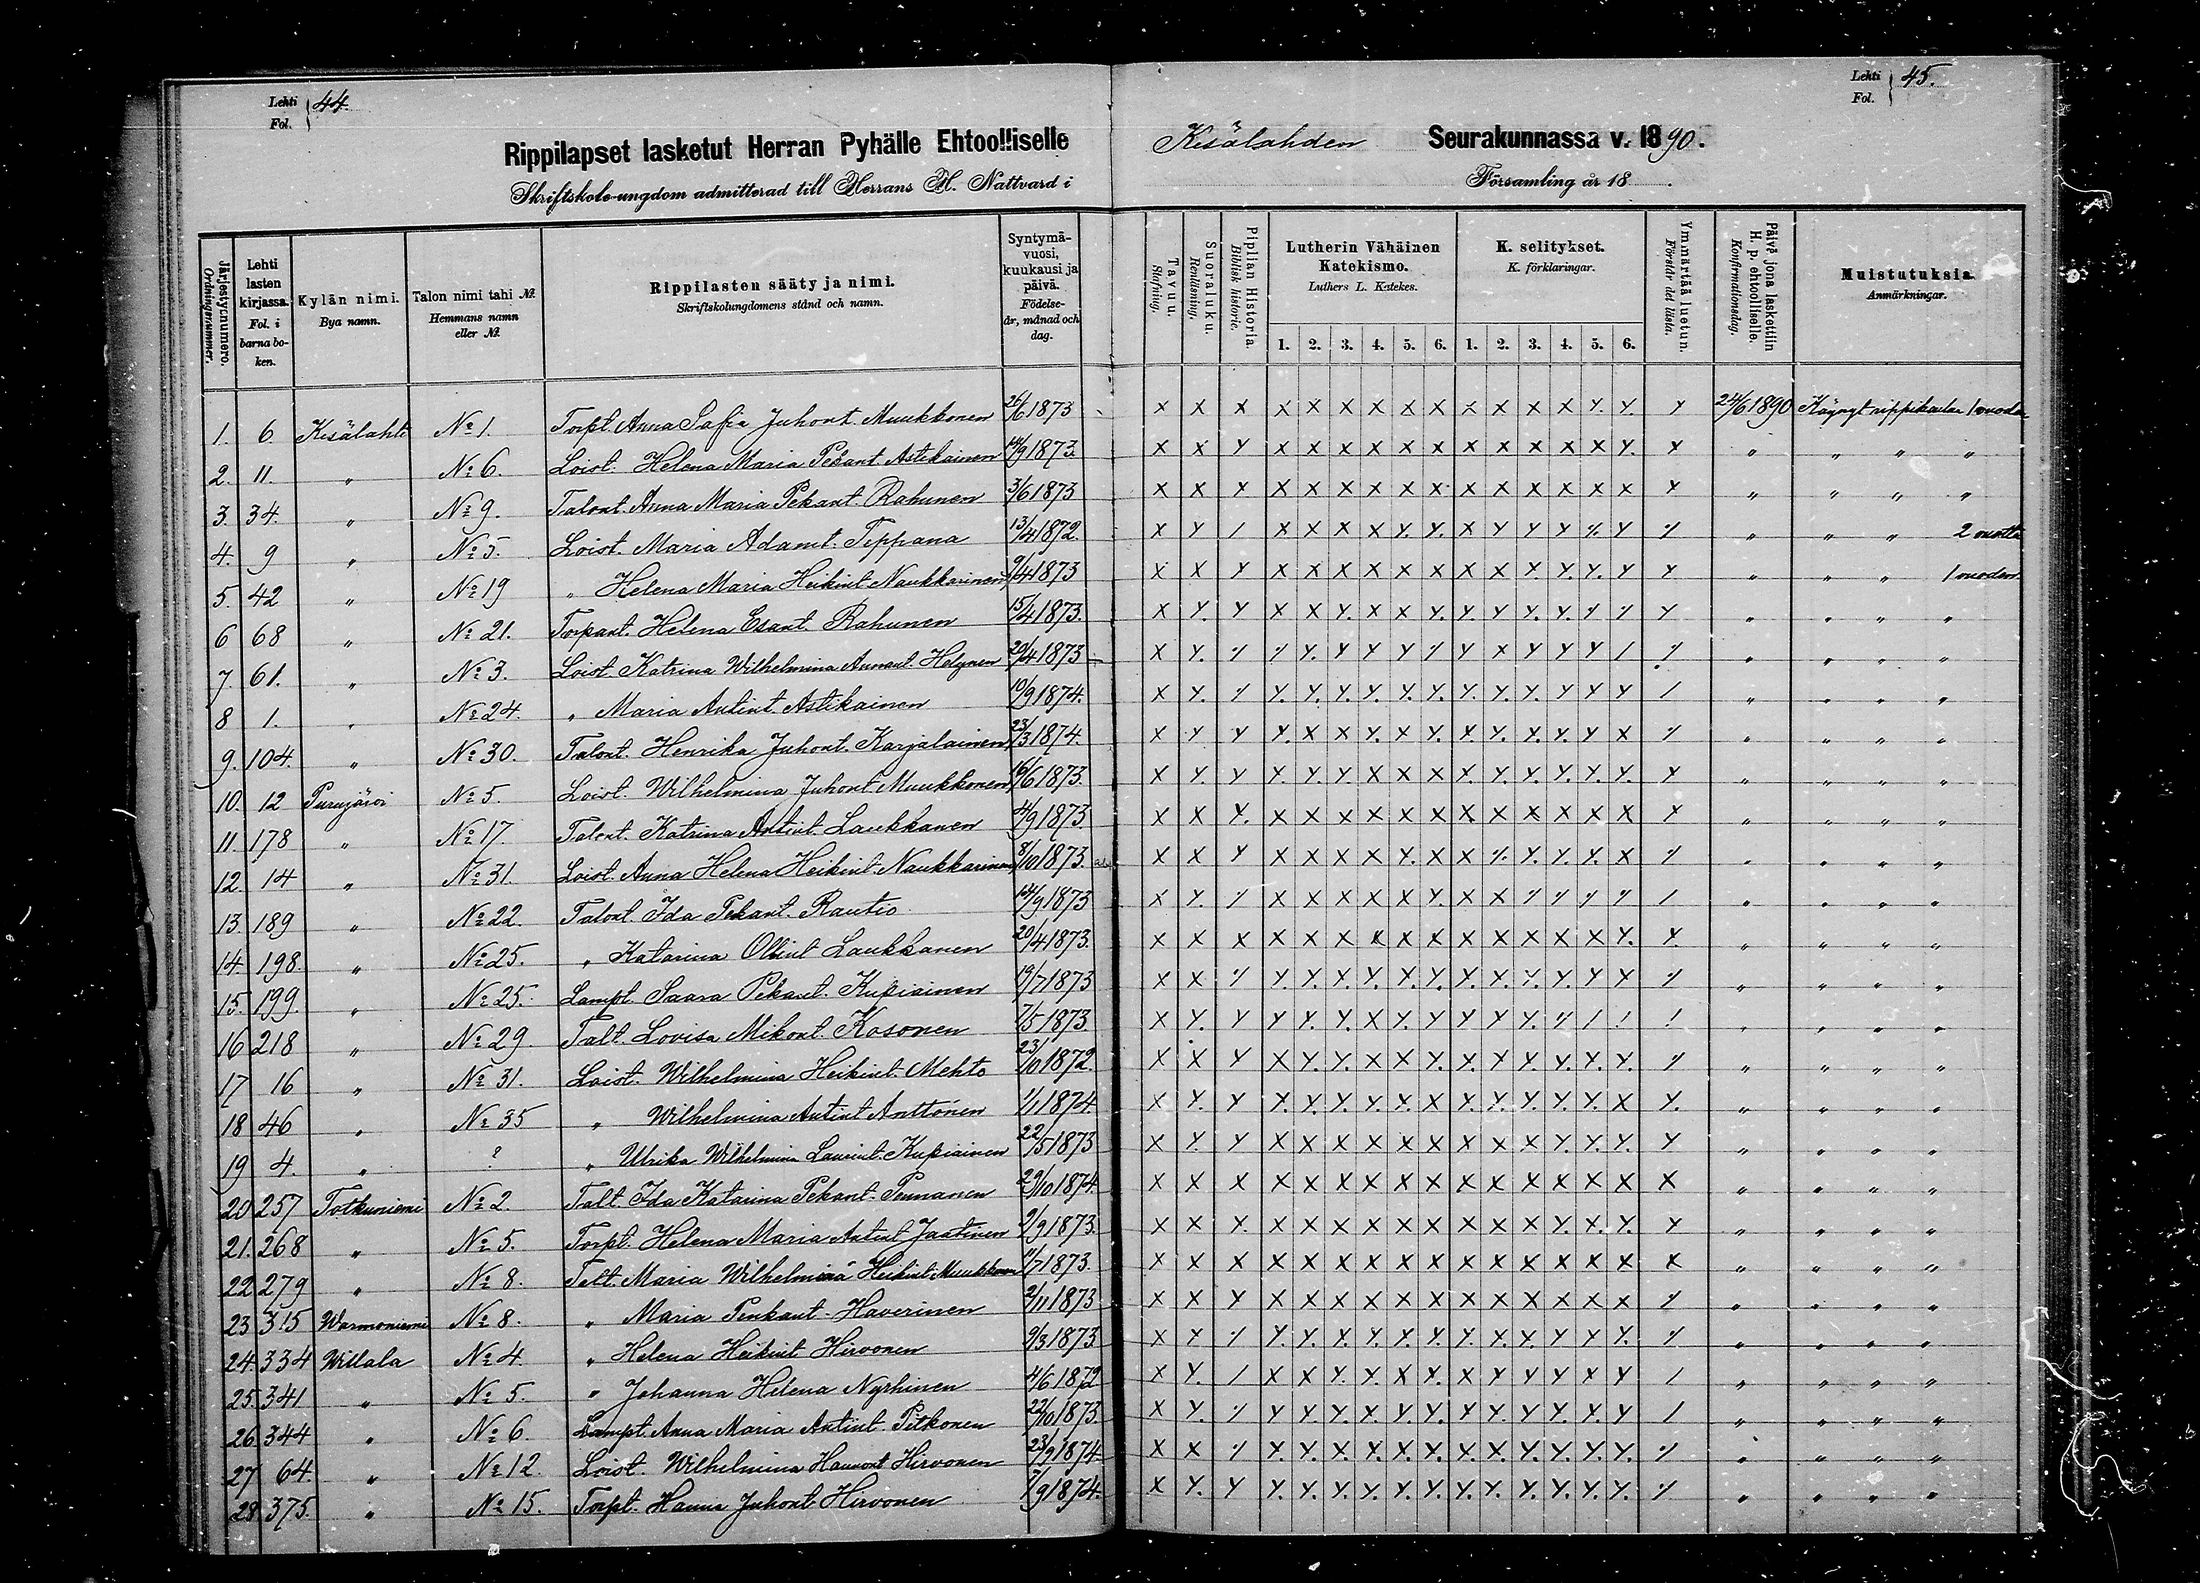 Lehti Fol. 44.
Lehti Fol. 45.
Rippilapset lasketut Herran Pyhälle Ehtoolliselle Kesälahden Seurakunnassa v. 1890.
Skriftskole-ungdom admitterad till Herrans H. Nattvard i Församling år 18
Järjestysnumero. Ordningsnummer.
Lehti lasten kirjassa. Fol. i barna boken.
Kylän nimi. Bya namn.
Talon nimi tahi №. Hemmans namn eller №.
Rippilasten sääty ja nimi. Skriftskolungdomens stånd och namn.
Syntymävuosi, kuukausi ja päivä. Födelseår, månad och dag.
Tavuu. Stafning.
Suoraluku. Renläsning.
Piplian Historia. Biblisk historie.
Lutherin Vähäinen Katekismo. Luthers L. Katekes.
1. 2. 3. 4. 5. 6.
K. selitykset. K. förklaringar.
1. 2. 3. 4. 5. 6.
Ymmärtää luetun. Förstår det lästa.
Päivä jona laskettiin H. p. ehtoolliselle. Konfirmationsdag.
Muistutuksia. Anmärkningar.
1. 6 Kesälahti № 1. Torpt. Anna Sofia Juhont. Muukkonen 26/6 1873 24/6 1890 Käynyt rippikoulua 1 vuoden
2. 11. " № 6. Loist. Helena Maria Pekant. Astikainen 14/9 1873. " " " "
3. 34. " № 9. Talont. Anna Maria Pekant. Rahunen 3/6 1873 " " " "
4. 9 " № 5. Loist. Maria Adamt. Teppana 13/4 1872. " " " 2 vuotta
5. 42 " № 19 " Helena Maria Heikint. Naukkarinen 9/4 1873 " " " 1 vuoden
6 68 " № 21. Torpant. Helena Esant. Rahunen 15/4 1873. " " " "
7. 61. " № 3. Loist. Katrina Wilhelmina 20/4 1873 " " " "
8 1. " № 24. " Maria Antint. Astikainen 19/9 1874. " " " "
9. 104. " № 30. Talont. Henrika Juhont. Karjalainen 23/3 1874. " " " "
10. 12 Purujärvi № 5. Loist. Wilhelmina Juhont. Muukkonen 16/6 1873. " " " "
11. 178 " № 17. Talont. Katrina Antint. Laukkanen 9 1873 " " " "
12. 14 " № 31. Loist. Anna Helena Heikint. Naukkarinen 8/10 1873. " " " "
13. 189 " № 22. Talont. Ida Pekant. Rautio 14/9 1873 " " " "
14. 198. " № 25. " Katarina Ollint. Laukkanen 20/4 1873. " " " "
15. 199. " № 25. Lampt. Saara Pekant. Kupiainen 19/7 1873 " " " "
16 218 " № 29 Talt. Lovisa Mikont. Kosonen 7/5 1873. " " " "
17 16 " № 31. Loist. Wilhelmina Heikint. Mehto 23/10 1872. " " " "
18 46 " № 35 " Wilhelmina Antint. Anttonen 1/1 1874 " " " "
19 4. " ? " Ulrika Wilhelmina Laurint. Kupiainen 22/5 1873 " " " "
20 257 Totkuniemi № 2. Talt. Ida Katarina Pekant. Pennanen 29/10 1874. " " " "
21. 268 " № 5. Torpt. Helena Maria Antint. Jaatinen 9/9 1873. " " " "
22 279 " № 8. Talt. Maria Wilhelmina Heikint. Muukkonen 11/7 1873. " " " "
23 315 Warmoniemi № 8. " Maria Penkant. Haverinen 2/11 1873 " " " "
24. 334 Willala № 4. " Helena Heikint. Hirvonen 9/3 1873 " " " "
25. 341 " № 5. " Johanna Helena Nyrhinen 4/6 1872 " " " "
26 344 " № 6. Lampt. Anna Maria Antint. Pitkonen 22/10 1873. " " " "
27 64. " № 12. Loist. Wilhelmina Hirvonen 23/9 1874 " " " "
28. 375. " № 15. Torpt. Hanna Juhont. Hirvonen 7/9 1874. " " " "